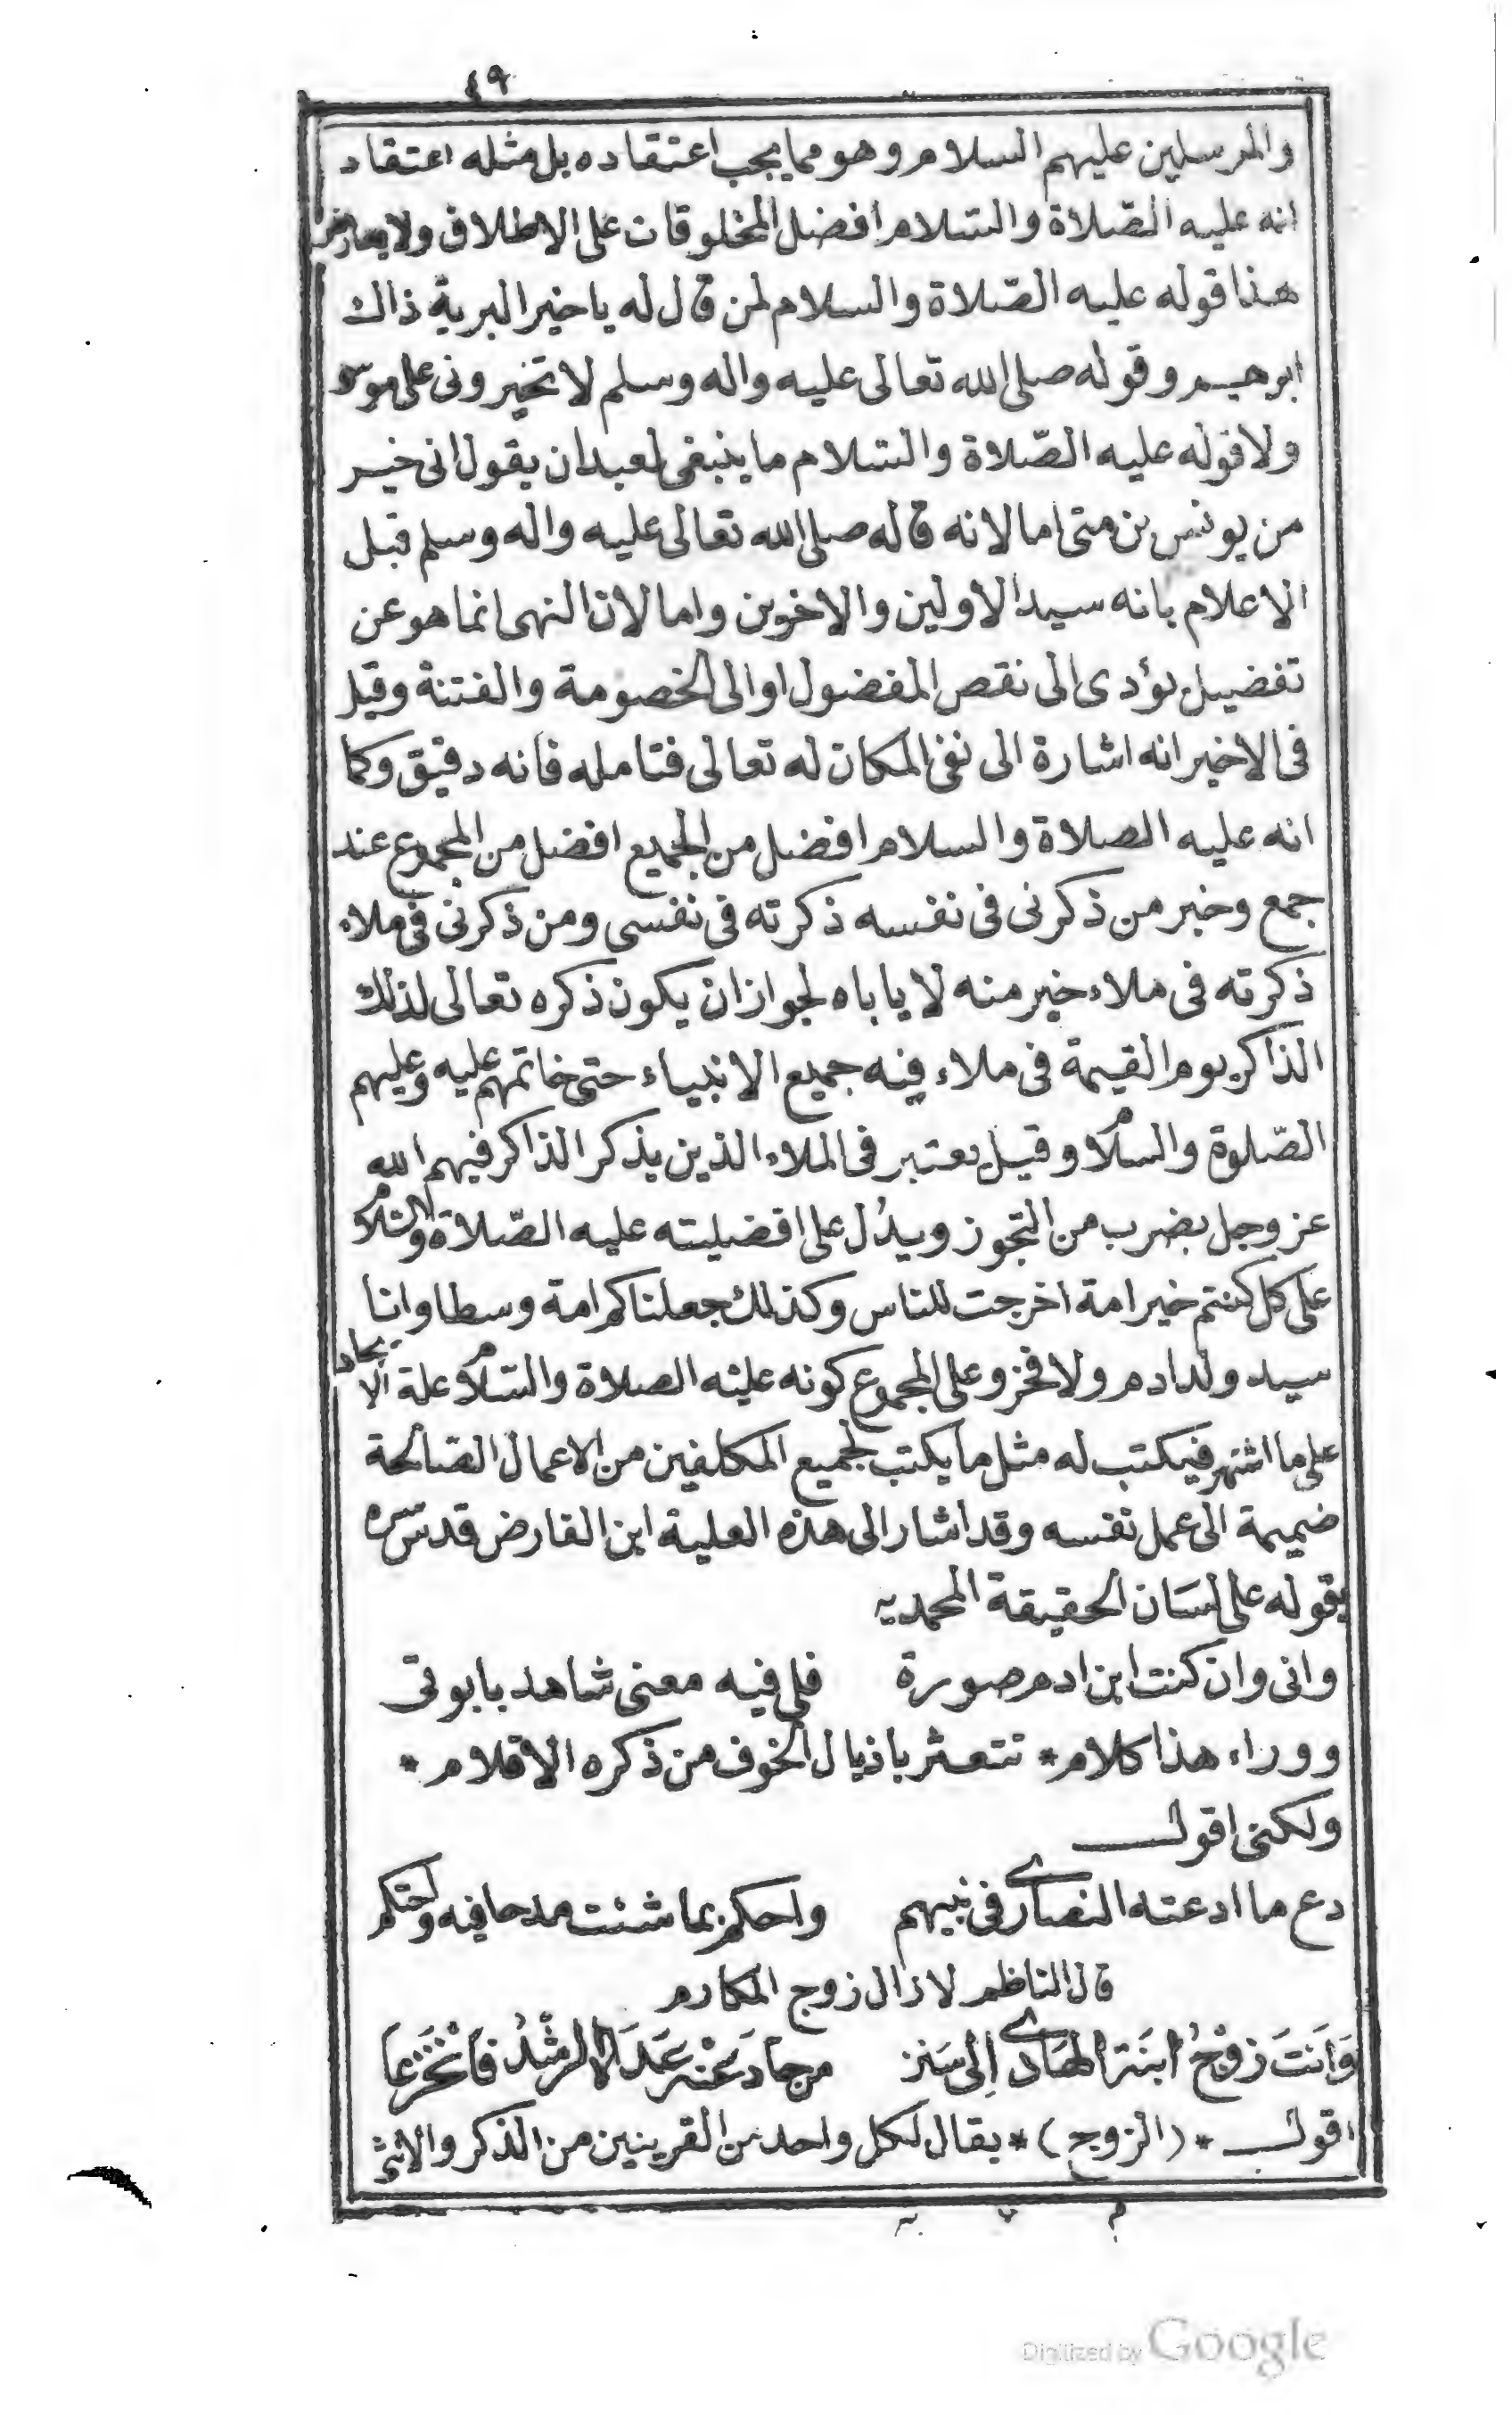 ٤٩
والمرسلين عليهم السلام وهو مما يجب اعتقاده بل مثله اعتقاد
انه عليه الصّلاة والسّلام افضل المخلوقات على الاطلاق ولا يعارض
هذا قوله عليه الصّلاة والسلام لمن قال له يا خير البرية ذاك
ابرهيم وقوله صلى الله تعالى عليه واله وسلم لا تخيرونى على موسى
ولا قوله عليه الصّلاة والسّلام ما ينبغى لعبد ان يقول انى خير
من يونس بن متى اما لانه قاله صلى الله تعالى عليه واله وسلم قبل
الاعلام بانه سيد الاولين والاخرين واما لان النهى انما هو عن
تفضيل يؤدى الى نقص المفضول او الى الخصومة والفتنة وقيل
فى الاخير انه اشارة الى نفى المكان له تعالى فتامله فانه دقيق وكما
انه عليه الصلاة والسلام افضل من الجميع افضل من المجموع عند
جمع وخبر من ذكرنى فى نفسه ذكرته فى نفسى ومن ذكرنى فى ملاء
ذكرته فى ملاء خير منه لا ياباه لجواز ان يكون ذكره تعالى لذلك
الذاكر يوم القيمة فى ملاء فيه جميع الانبياء حتى خاتمهم عليه وعليهم
الصّلوة والسلام وقيل يعتبر فى الملاء الذين يذكر الذاكر فيهم الله
عز وجل بضرب من التجوز ويدُل على افضليته عليه الصّلاة والسّلام
على كل كنتم خير امة اخرجت للناس وكذلك جعلناكم امة وسطا وانا
سيد ولد ادم ولا فخر وعلى المجموع كونه عليه الصلاة والسّلام علة الايجاد
على ما اشتهر فيكتب له مثل ما يكتب لجميع المكلفين من الاعمال الصّالحة
ضميمة الى عمل نفسه وقد اشار الى هذه العلية ابن الفارض قدس سره
بقوله على لسَان الحقيقة المحمديه
وانى وان كنت ابن ادم صورة فلى فيه معنى شاهد بابوتى
ووراء هذا كلام * تتعثر باذيال الخوف من ذكره الاقلام *
ولكنى اقول
دع ما ادعته النصارى فى نبيهم واحكم بما شئت مدحا فيه واحتكم
قال الناظم لا زال زوج المكارم
وَاَنتَ زوْجُ ابنَة الهَادى اِلى سَنن من حَادَ عَنْه عَدَاهُ الرشْدُ فَانْخَزَعا
اقول * (الزوج) * يقال لكل واحد من القرينين من الذكر والانثى